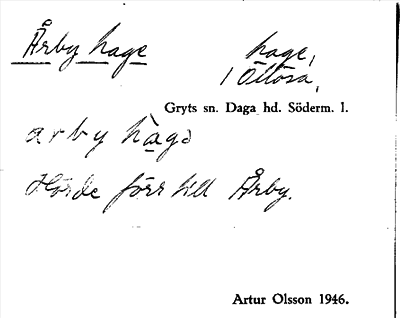 Årby hage
hage,
i Öllösa,
Gryts sn. Daga hd. Söderm. l.
arby hagə
Hörde förr till Årby.
Artur Olsson 1946.